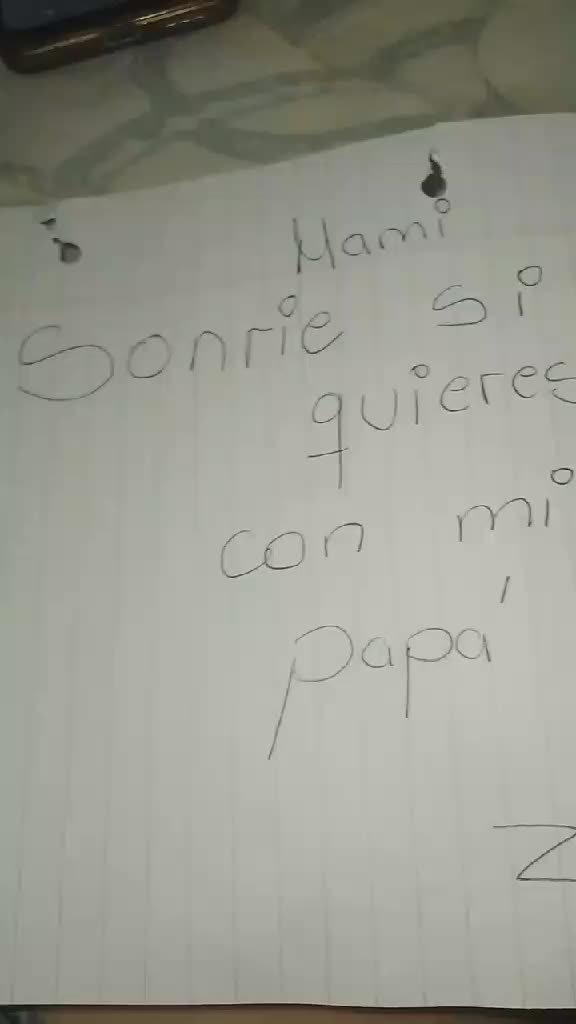 Mami
Sonrie si
quieres
con mi
papá
Z